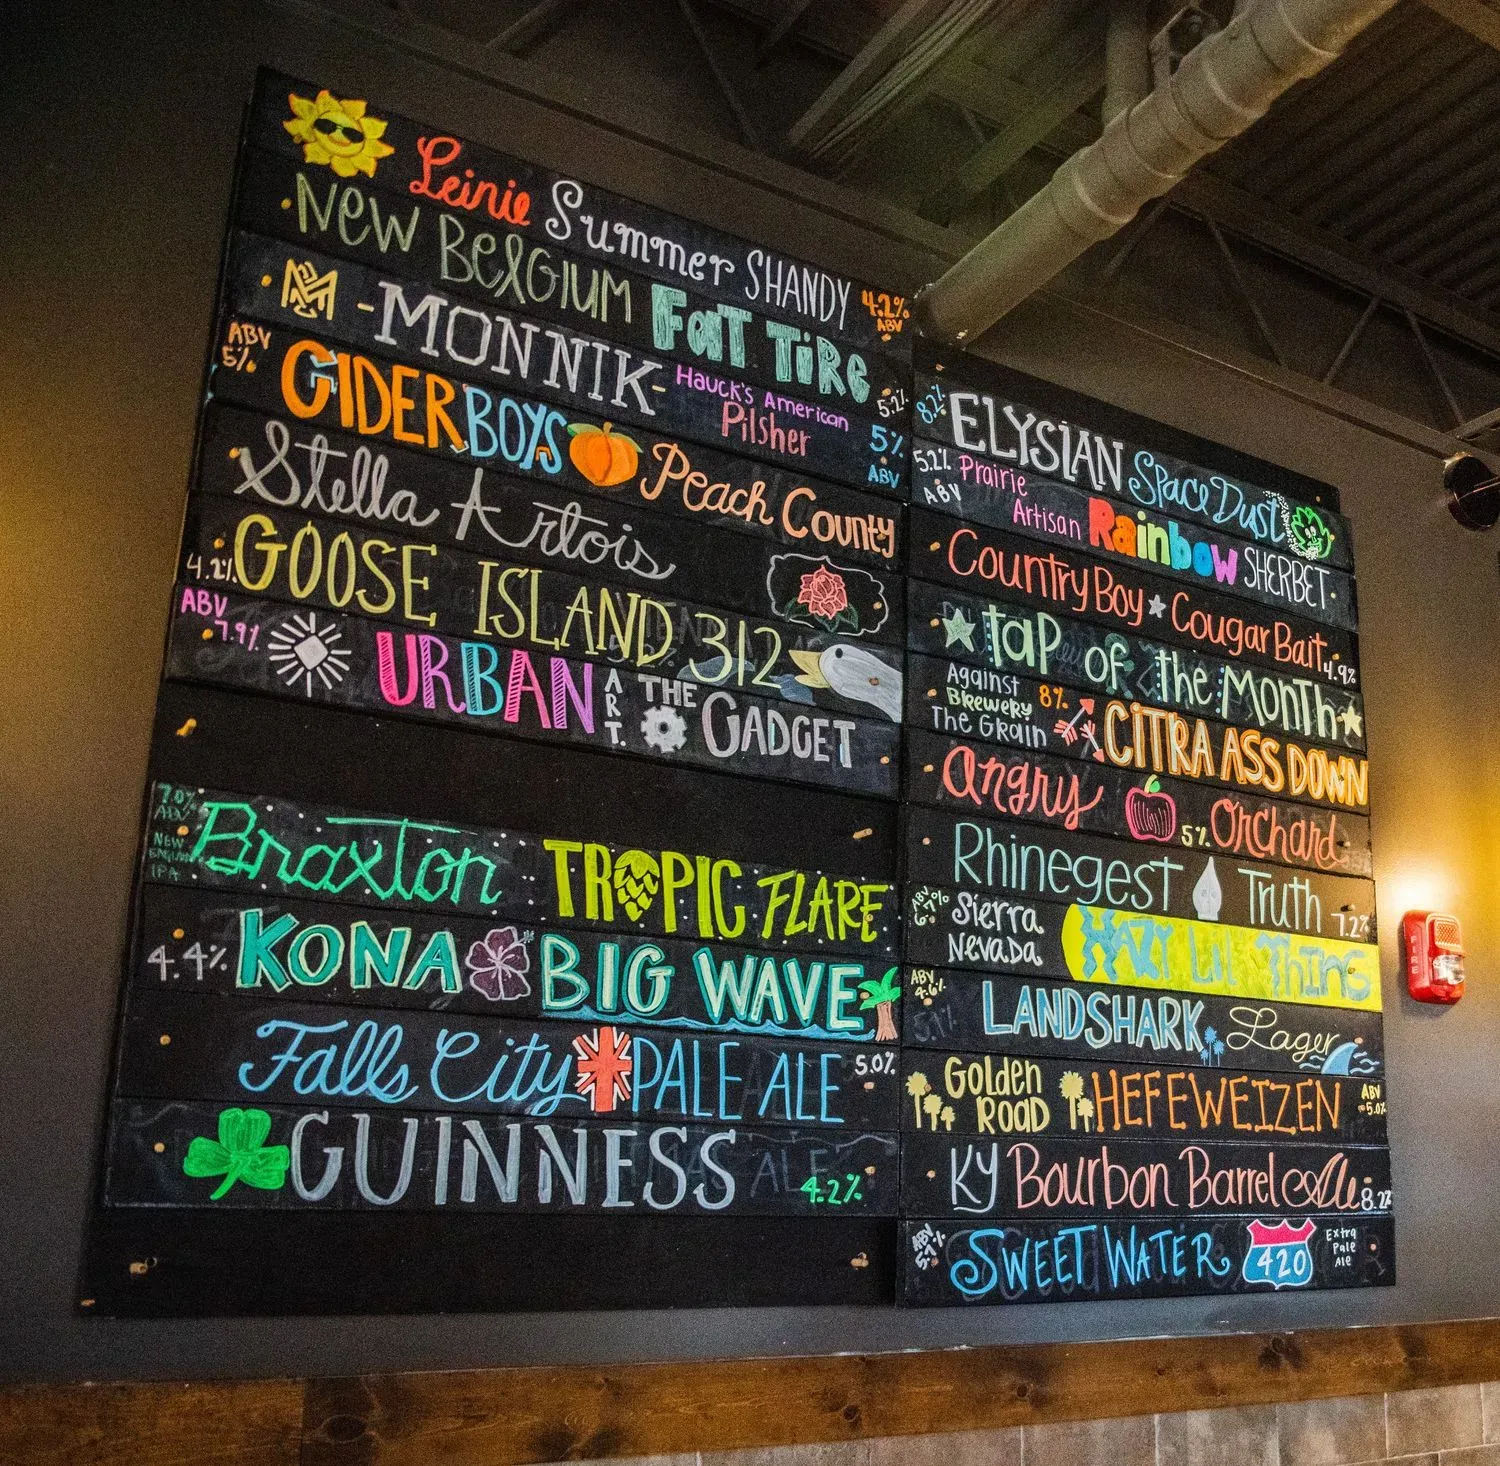 Leinie Summer SHANDY 4.2% ABV
New BelGIUM FAT TiRe 5.2%
-MONNIK- Hauck's American Pilsner 5% ABV
ABV 5% CIDERBOYS Peach County
Stella Artois
4.2% GOOSE ISLAND 312
ABV 7.9% URBAN ART. THE GADGET
7.0% ABV NEW ENGLAND IPA Braxton TROPIC FLARE
4.4% KONA BIG WAVE
Falls City PALE ALE 5.0%
GUINNESS 4.2%
8.2% ELYSIAN Space Dust
5.2% ABV Prairie Artisan Rainbow SHERBET
Country Boy Cougar Bait 4.9%
tap of the Month
Against The Grain Brewery 8% CITRA ASS DOWN
Angry Orchard 5%
Rhinegest Truth 7.2%
ABV 6.7% Sierra Nevada HAZY Lil Thing
ABV 4.6% LANDSHARK Lager
Golden Road HEFEWEIZEN ABV 5.0%
KY Bourbon Barrel Ale 8.2%
ABV 5.7% SWEET WATER 420 Extra Pale Ale
FIRE